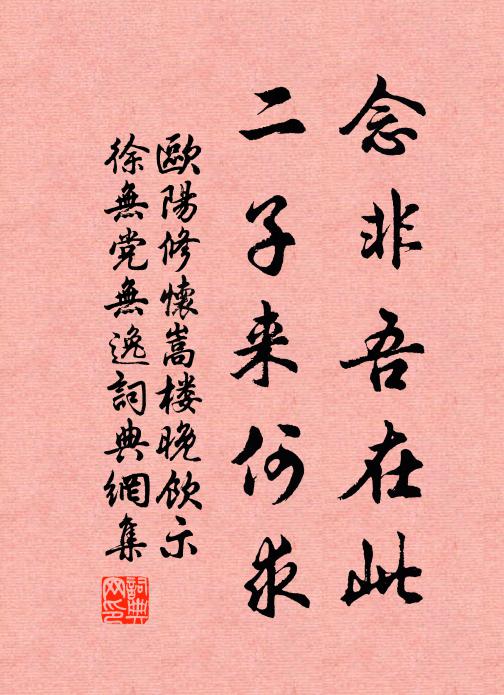 念非吾在此
二子来何求
歐陽修懷嵩楼晚飲示
徐無党無逸詞典網集
詞典网印